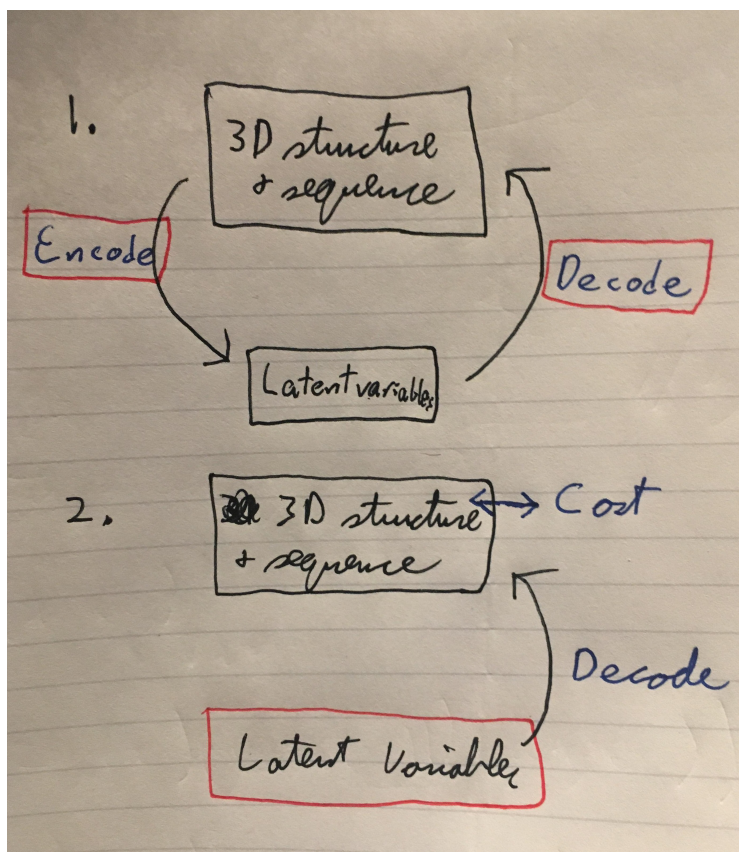 1.
3D structure
+ sequence
Encode
Decode
Latent variables
2.
3D structure
+ sequence
Cost
Decode
Latent Variables